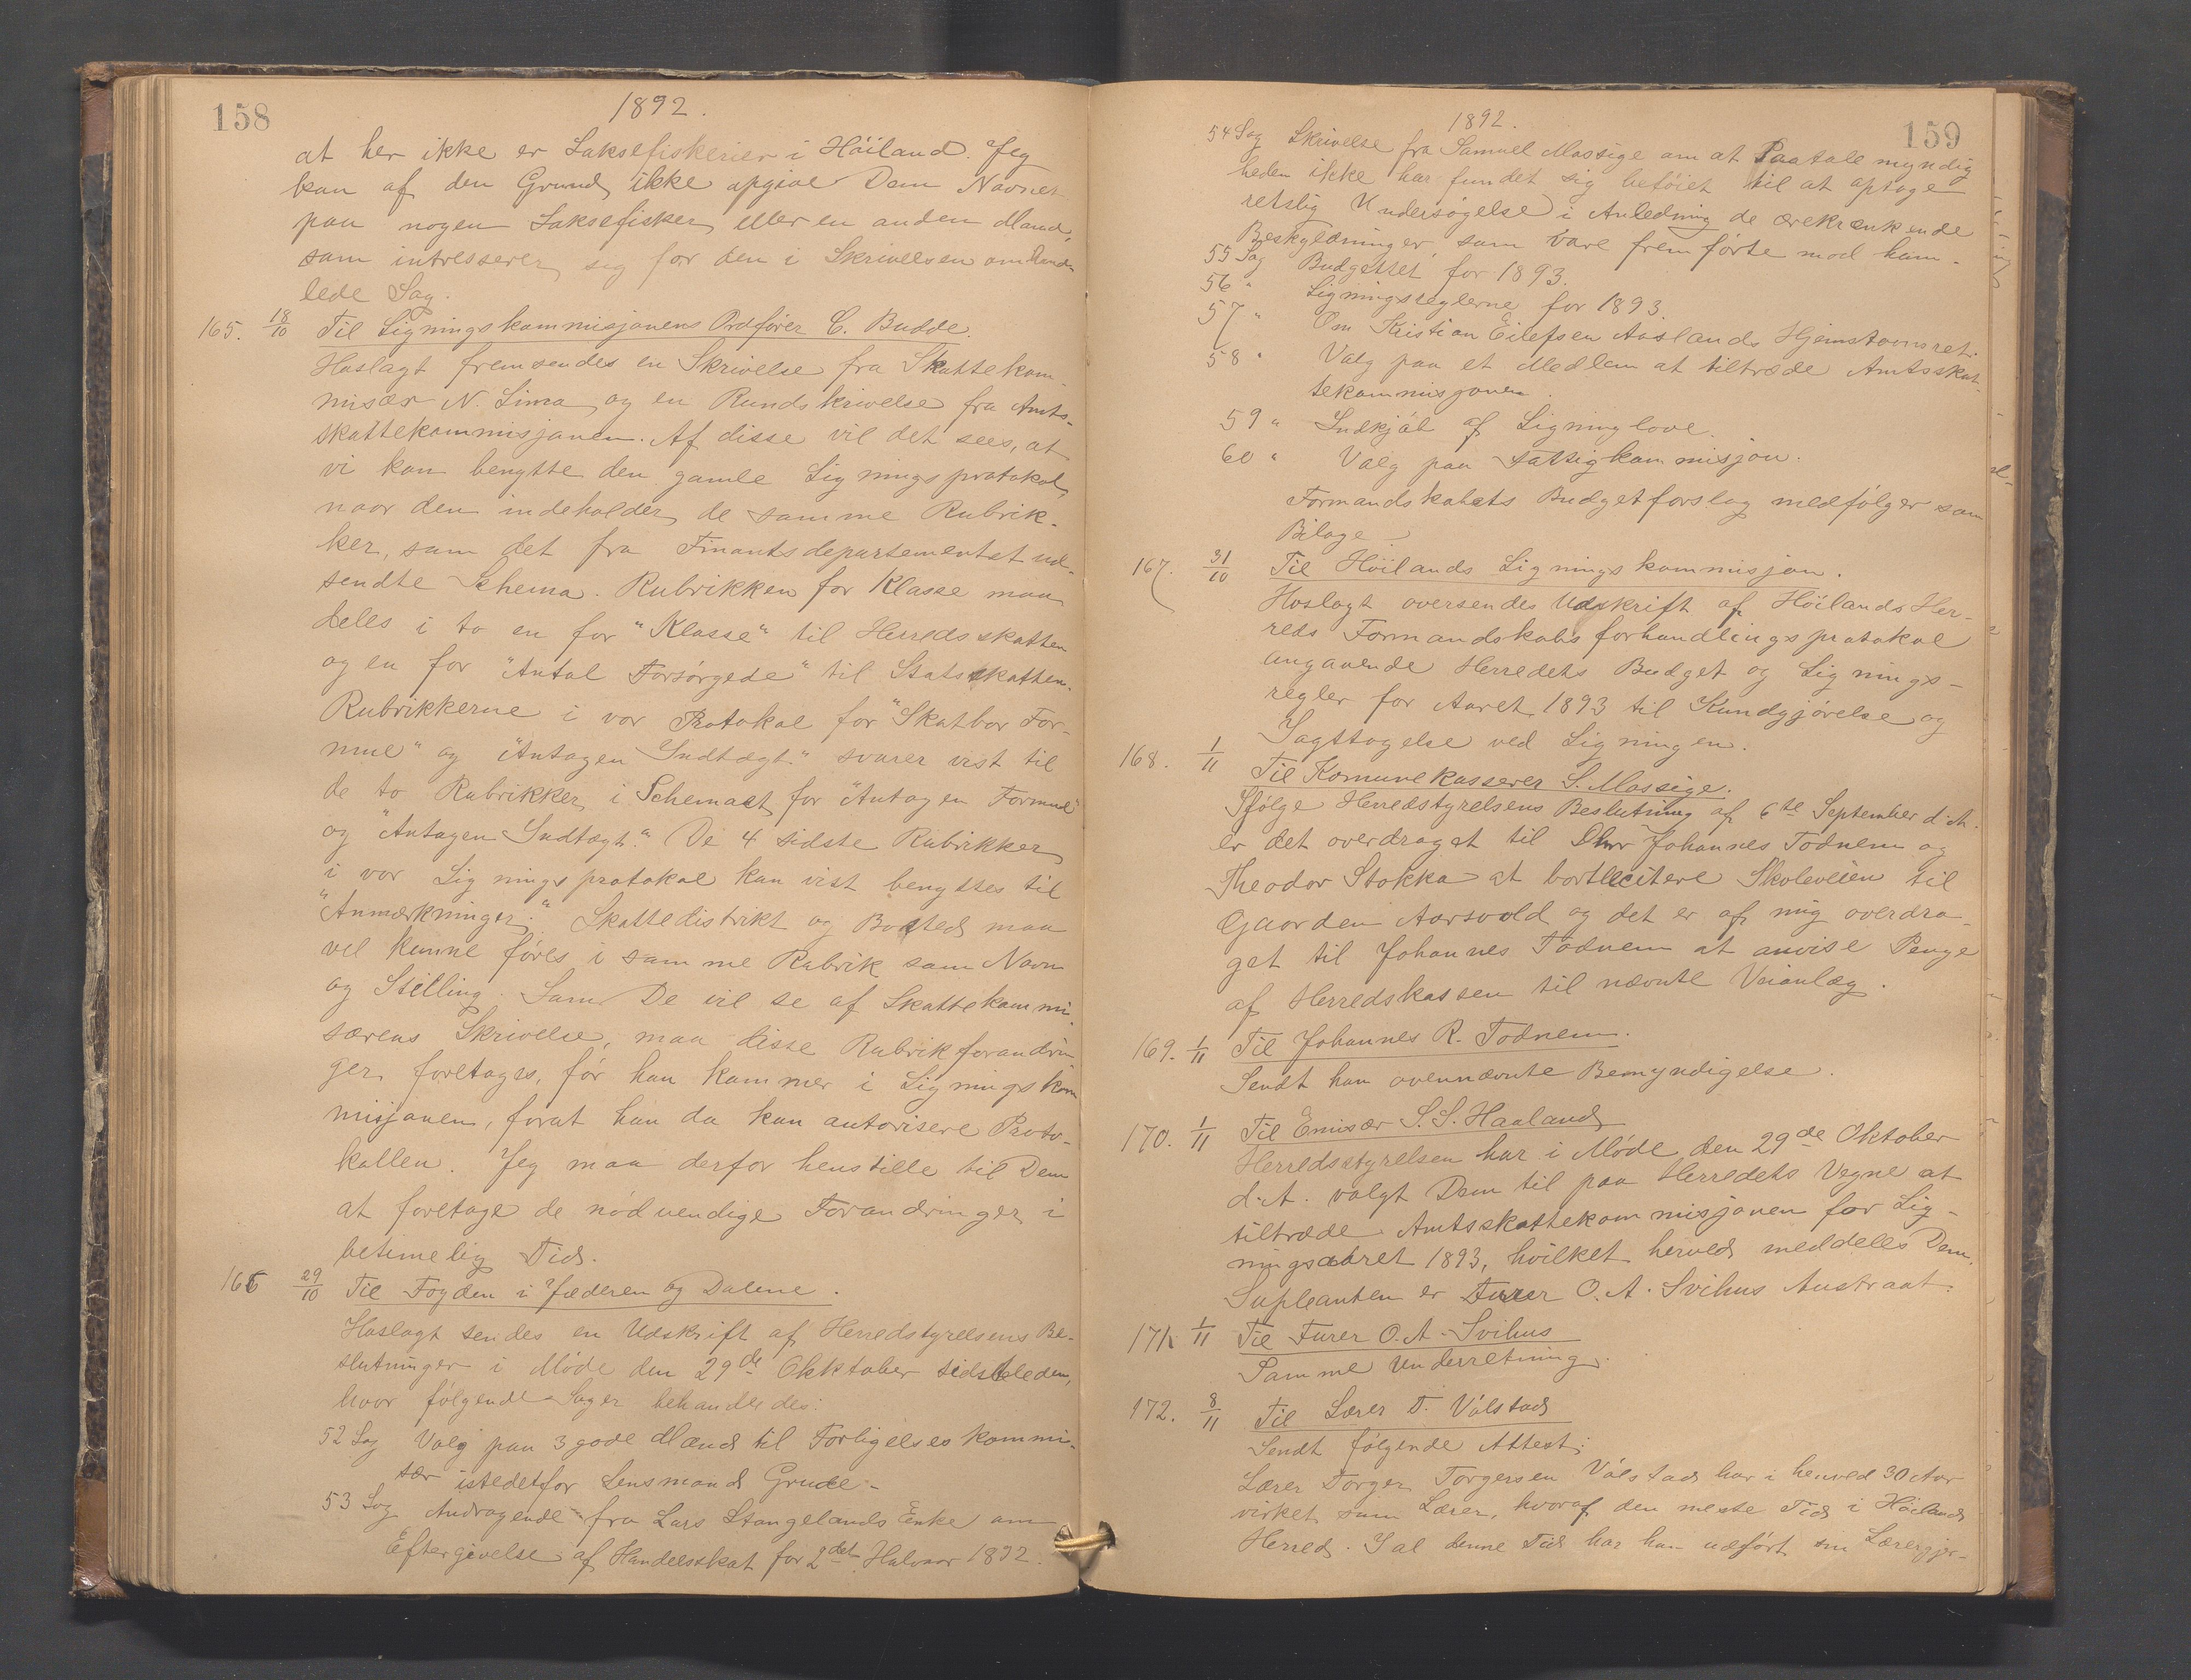 158
1892.
at her ikke er Laksefiskerier i Höiland. Jeg
kan af den Grund ikke opgive Dem Navnet
paa nogen Laksefisker eller en anden Mand,
som intresserer sig for den i Skrivelsen omhand-
lede Sag.
165. 18/10 Til Ligningskommisjonens Ordfører C. Budde.
Hoslagt fremsendes en Skrivelse fra Skattekom-
misær N. Lima og en Rundskrivelse fra Amts-
skattekommisjonen. Af disse vil det sees, at
vi kan benytte den gamle Ligningsprotokol,
naar den indeholder de samme Rubrik-
ker, som det fra Finantsdepartementet ud-
sendte Schema. Rubrikken for Klasse maa
deles i to en for "Klasse" til Herredsskatten
og en for "Antal Forsørgede" til Statsskatten.
Rubrikkerne i vor Protokol for "Skatbar For-
mue" og "Antagen Indtægt" svarer vist til
de to Rubrikker i Schemaet for "Antagen Formue"
og "Antagen Indtægt." De 4 sidste Rubrikker
i vor Ligningsprotokol kan vist benyttes til
"Anmærkninger." Skattedistrikt og Bosted maa
vel kunne føres i samme Rubrik som Navn
og Stilling. Som De vil se af Skattekommi-
særens Skrivelse, maa disse Rubrikforandrin
ger foretages, før han kommer i Ligningskom
misjonen, forat han da kan autorisere Proto-
kollen. Jeg maa derfor henstille til Dem
at foretage de nødvendige Forandringer i
betimelig Tid.
166 29/10 Til Fogden i Jæderen og Dalene.
Hoslagt sendes en Udskrift af Herredstyrelsens Be-
slutninger i Møde den 29de Okktober sidstleden,
hvor følgende Sager behandledes:
52 Sag Valg paa 3 gode Mænd til Forligelseskommi-
sær istedetfor Lensmand Grude.-
53 Sag Andragende fra Lars Stangelands Enke om
Eftergivelse af Handelsskat for 2det Halvaar 1892.
159
1892.
54 Sag Skrivelse fra Samuel Mossige om at Paatalemyndig
heden ikke har fundet sig beføiet til at optage
retslig Undersøgelse i Anledning de ærekrænkende
Beskyldninger som vare fremførte mod ham.
55 Sag Budgettet for 1893.
56 " Ligningsreglerne for 1893.
57 " Om Kristian Eilefsen Aaslands Hjemstavnsret.
58 " Valg paa et Medlem at tiltræde Amtsskat-
tekommisjonen.
59 " Indkjøb af Ligninglove.
60 " Valg paa Fattigkommisjon.
Formandskabets Budgetforslag medfølger som
Bilage.
167. 31/10 Til Höilands Ligningskommisjon.
Hoslagt oversendes Udskrift af Höilands Her-
reds Formandskabs forhandlingsprotokol
angaaende Herredets Budget og Lignings-
regler for Aaret 1893 til Kundgjørelse og
Iagttagelse ved Ligningen.
168. 1/11 Til Komunekasserer S. Mossige.
Ifølge Herredstyrelsens Beslutning af 6te September d.A.
er det overdraget til Dhrr Johannes Todnem og
Theodor Stokka at bortlicitere Skoleveien til
Gaarden Aarsvold og det er af mig overdra-
get til Johannes Todnem at anvise Penge
af Herredskassen til nævnte Veianlæg.
169. 1/11 Til Johannes R. Todnem.
Sendt han ovennævnte Bemyndigelse.
170. 1/11 Til Emisær S. S. Haaland
Herredsstyrelsen har i Møde den 29de Oktober
d.A. valgt Dem til paa Herredets Vegne at
tiltræde Amtsskattekommisjonen for Lig-
ningsaaret 1893, hvilket herved meddeles Dem.
Supleanten er Furer O. A. Svihus Austraat.
171. 1/11 Til Furer O. A. Svihus
Samme Underretning.
172. 8/11 Til Lærer T. Vólstad
Sendt følgende Attest:
Lærer Torger Torgersen Vólstad har i henved 30 Aar
virket som Lærer, hvoraf den meste Tid i Höilands
Herred. I al denne Tid har han udført sin Lærergjer-